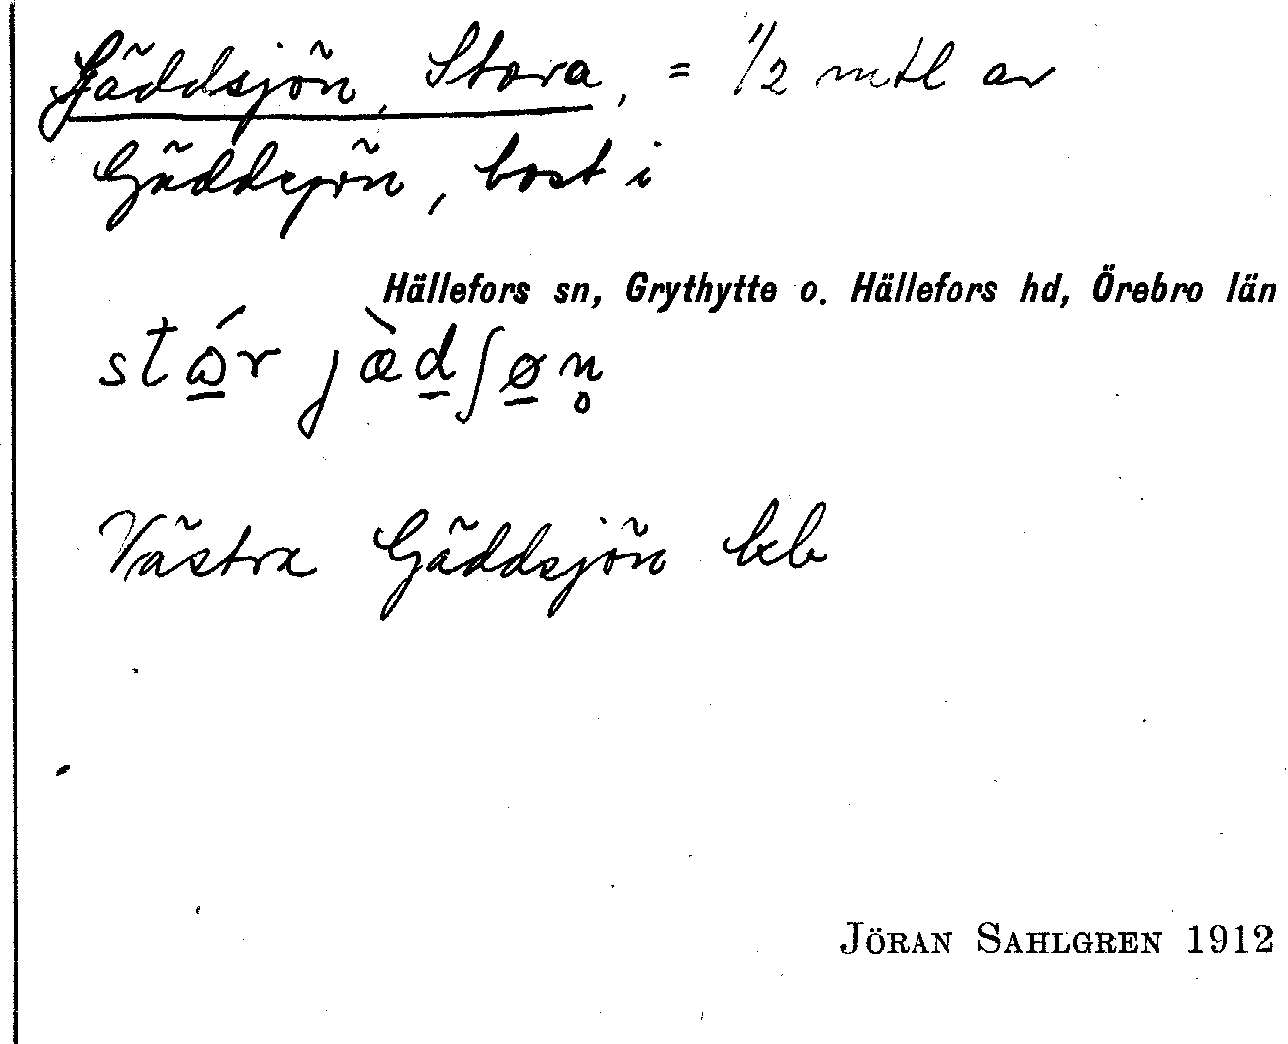 Gäddsjön, Stora, = 1/2 mtl av
Gäddsjön, bost i
Hällefors sn, Grythytte o. Hällefors hd, Örebro län
stɷ̲́r jæ̀d̲ʃø̲n̥
Västra Gäddsjön kb
JÖRAN SAHLGREN 1912